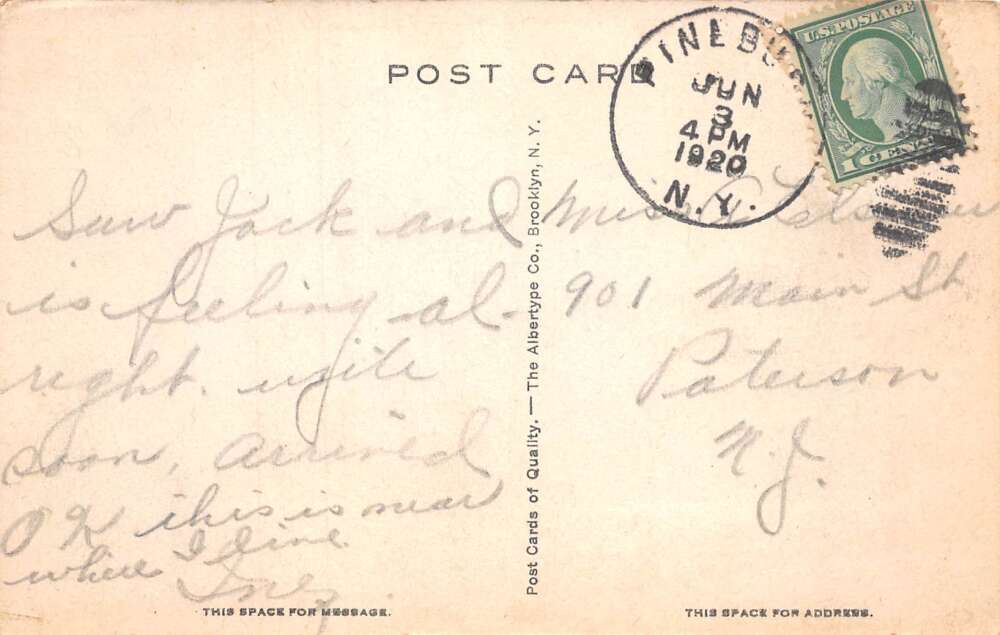 POST CARD
PINEBUS
JUN
3
4 PM
1920
N.Y.
U.S. POSTAGE
1 CENT
Saw Jack and
is feeling al-
right. write
soon, arrived
OK this is near
where I live
Inez
Miss
901 Main St
Paterson
N.J.
Post Cards of Quality. — The Albertype Co., Brooklyn, N. Y.
THIS SPACE FOR MESSAGE.
THIS SPACE FOR ADDRESS.